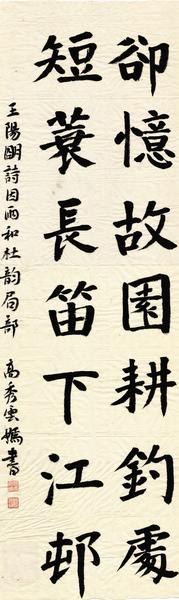 卻憶故園耕釣處
短蓑長笛下江邨
王陽明詩因雨和杜韵局部 高秀雲嫣書